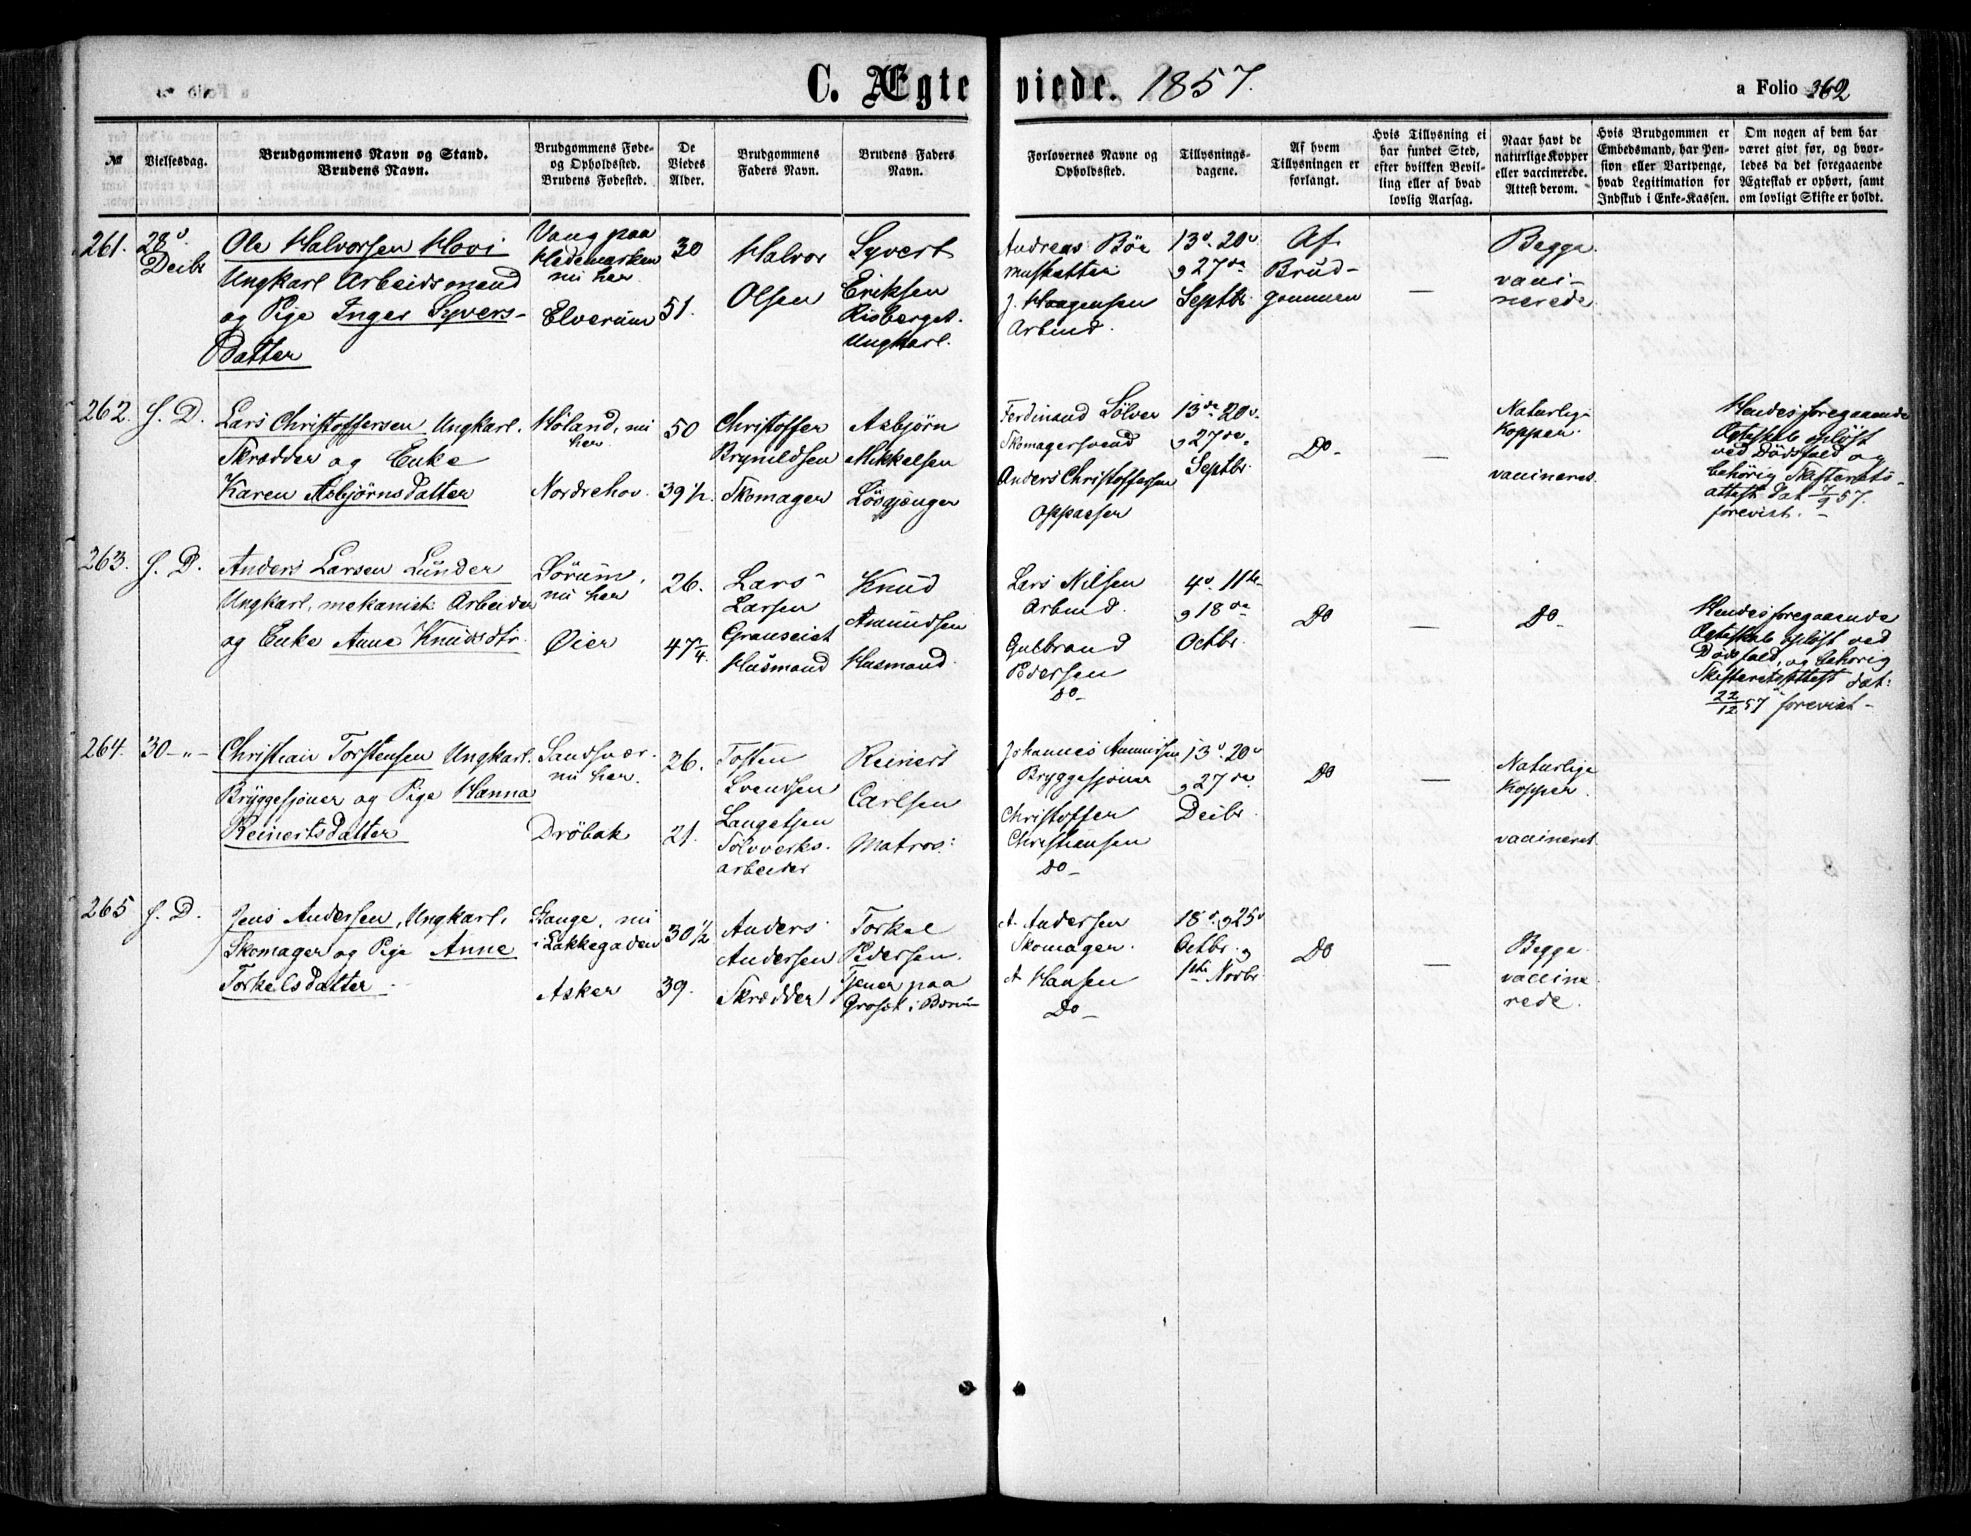 C. Ægteviede. 1857.
a Folio 362
No
Vielsesdag.
Brudgommens Navn og Stand.
Brudens Navn.
Brudgommens Føde-
og Opholdssted.
Brudens Fødested.
De
Viedes
Alder.
Brudgommens
Faders Navn.
Brudens Faders
Navn.
Forlovernes Navne og
Opholdssted.
Tillysnings-
dagene.
Af hvem
Tillysningen er
forlangt.
Hvis Tillysning ei
har fundet Sted,
efter hvilken Bevil-
ling eller af hvad
lovlig Aarsag.
Naar havt de
naturlige Kopper
eller vaccinerede.
Attest derom.
Hvis Brudgommen er
Embedsmand, har Pen-
sion eller Vartpenge,
hvad Legitimation for
Indskud i Enke-Kassen.
Om nogen af dem har
været givt før, og hvor-
ledes da det foregaaende
Ægteskab er ophørt, samt
om lovligt Skifte er holdt.
261.
28de
Decbr
Ole Halvorsen Hovi
Ungkarl Arbeidsmand
og Pige Inger Syvers-
datter
Vang paa
Hedemarken
nu her
Elverum
30
51.
Halvor
Olsen
Syvert
Eriksen
Risberget.
Ungkarl.
Andreas Böe
Musketteer
J. Haagensen
Arbmd.
13d. 20d
og 27de
Septbr.
Af
Brud-
gommen
—
Begge
vacci-
nerede
262.
S. D.
Lars Christoffersen Ungkarl.
Skrædder og Enke
Karen Asbjørnsdatter
Höland, nu
her
Nordrehov.
50
39½.
Christoffer
Bryneldsen
Skomager
Asbjörn
Mikkelsen
Lösgjenger
Ferdinand Sölver
Skomagersvend
Anders Christoffersen
Oppasser
13de 20d.
og 27de
Septbr.
Do-
—
Naturlige
Kopper.
vaccineret.
Hendes foregaaende
Ægteskab oplöst
ved Dödsfald og
behörig Skifterets-
attest dat 7/9 57.
forevist. -
263.
S. D.
Anders Larsen Lunder
Ungkarl, mekanisk Arbeider
og Enke Anne Knudsdtr.
Sörum,
nu her
Øier
26.
47¾.
Lars
Larsen
Husmand
Knud
Amundsen
Husmand.
Lars Nilsen
Arbmd.
Gulbrand
Pedersen
Do-
4d. 11te
og 18de
Octbr.
Do
—
Do-
Hendes foregaaende
Ægteskab oplöst ved
Dödsfald, og behörig
Skifteretsattest dat:
22/12 57 forevist-
264.
30-"-
Christian Torstensen Ungkarl.
Bryggesjouer og Pige Hanna
Reinertsdatter
Sandsvær.
nu her.
Dröbak
26.
21.
Tosten
Svendsen
Sölvverks-
arbeider
Reinert
Carlsen
Matros:
Johannes Amundsen
Bryggesjouer
Christoffer
Christiansen
Do-
13d. 20d
og 27de.
Decbr.
Do
—
Naturlige
Kopper.
vaccineret.
265
S. D.
Jens Andersen, Ungkarl,
Skomager og Pige Anne
Torkelsdatter.
Stange, nu
i Lakkegaden
Asker
30½
39.
Anders
Andersen
Skrædder
Torkel
Pedersen.
Tjener paa
i Bærum
A. Andersen
Skomager.
A Hansen
Do-
18d. og 25d
Octbr. og
1ste Novbr.
Do
—
Begge
vaccine
rede.